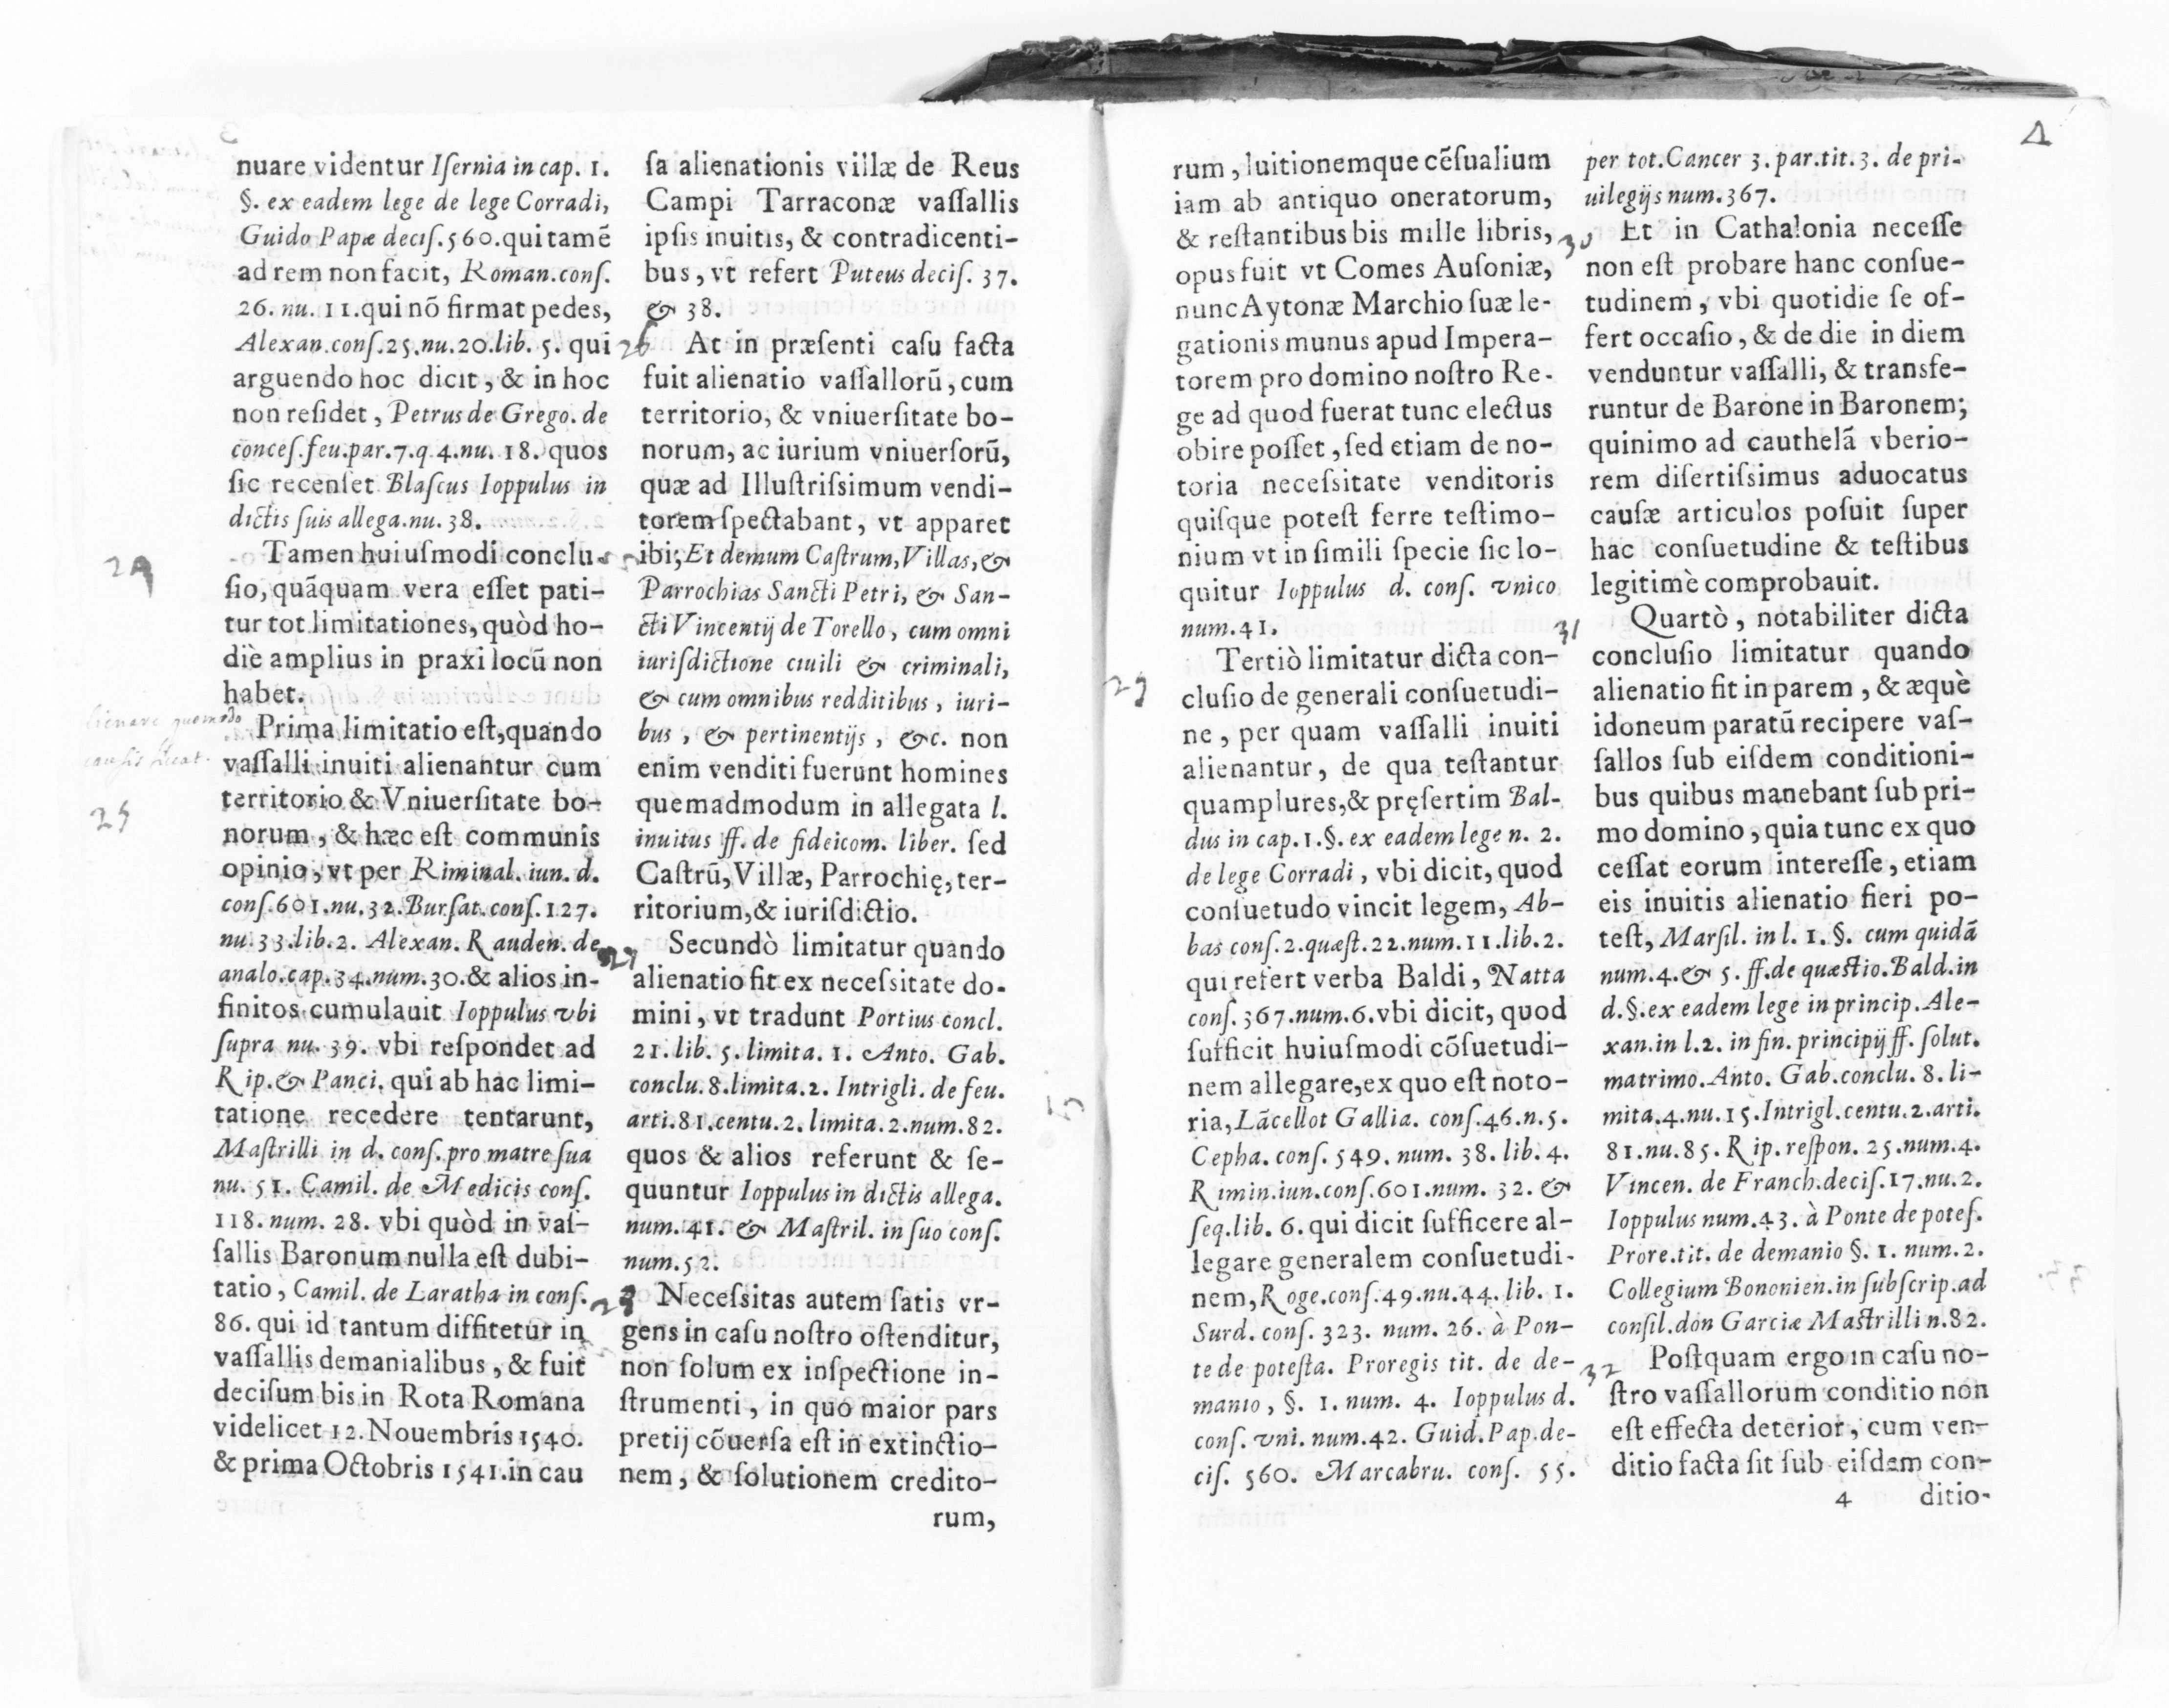 3
nuare videntur Iſernia in cap. 1.
§. ex eadem lege de lege Corradi,
Guido Papæ deciſ.560.qui tamē
ad rem non facit, Roman.conſ.
26. nu. 11.qui nō firmat pedes,
Alexan.conſ.25.nu.20.lib. 5. qui
arguendo hoc dicit, & in hoc
non reſidet, Petrus de Grego. de
conceſ.feu.par.7.q.4.nu. 18. quos
ſic recenſet Blaſcus Ioppulus in
dictis ſuis allega.nu. 38.
24
Tamen huiuſmodi conclu-
ſio, quāquam vera eſſet pati-
tur tot limitationes, quòd ho-
diè amplius in praxi locū non
habet.
quomodo
Prima limitatio eſt, quando
vaſſalli inuiti alienantur cum
25
territorio & Vniuerſitate bo-
norum, & hæc eſt communis
opinio, vt per Riminal. iun. d.
conſ.601.nu.32.Burſat.conſ.127.
nu.33.lib.2. Alexan. Rauden. de
analo.cap.34.num.30.& alios in-
finitos cumulauit Ioppulus vbi
ſupra nu. 39. vbi reſpondet ad
Rip.& Panci. qui ab hac limi-
tatione recedere tentarunt,
Maſtrilli in d. conſ. pro matre ſua
nu. 51. Camil. de Medicis conſ.
118. num. 28. vbi quòd in vaſ-
ſallis Baronum nulla eſt dubi-
tatio, Camil. de Laratha in conſ.
86. qui id tantum diffitetur in
vaſſallis demanialibus, & fuit
deciſum bis in Rota Romana
videlicet 12. Nouembris 1540.
& prima Octobris 1541. in cau
ſa alienationis villæ de Reus
Campi Tarraconæ vaſſallis
ipſis inuitis, & contradicenti-
bus, vt refert Puteus deciſ. 37.
& 38.
26 At in præſenti caſu facta
fuit alienatio vaſſallorū, cum
territorio, & vniuerſitate bo-
norum, ac iurium vniuerſorū,
quæ ad Illuſtriſsimum vendi-
torem ſpectabant, vt apparet
ibi; Et demum Caſtrum, Villas, &
Parrochias Sancti Petri, & San-
cti Vincentij de Torello, cum omni
iuriſdictione ciuili & criminali,
& cum omnibus redditibus, iuri-
bus, & pertinentijs, &c. non
enim venditi fuerunt homines
quemadmodum in allegata l.
inuitus ff. de fideicom. liber. ſed
Caſtrū, Villæ, Parrochię, ter-
ritorium, & iuriſdictio.
27 Secundò limitatur quando
alienatio fit ex neceſsitate do-
mini, vt tradunt Portius concl.
21. lib. 5. limita. 1. Anto. Gab.
conclu. 8. limita.2. Intrigli. de feu.
arti.81.centu.2. limita.2.num.82.
quos & alios referunt & ſe-
quuntur Ioppulus in dictis allega.
num.41. & Maſtril. in ſuo conſ.
num.52.
28 Neceſsitas autem ſatis vr-
gens in caſu noſtro oſtenditur,
non ſolum ex inſpectione in-
ſtrumenti, in quo maior pars
pretij cōuerſa eſt in extinctio-
nem, & ſolutionem credito-
rum,
4
rum, luitionemque cēſualium
iam ab antiquo oneratorum,
& reſtantibus bis mille libris,
opus fuit vt Comes Auſoniæ,
nunc Aytonæ Marchio ſuæ le-
gationis munus apud Impera-
torem pro domino noſtro Re-
ge ad quod fuerat tunc electus
obire poſſet, ſed etiam de no-
toria neceſsitate venditoris
quiſque poteſt ferre teſtimo-
nium vt in ſimili ſpecie ſic lo-
quitur Ioppulus d. conſ. vnico
num.41.
Tertiò limitatur dicta con-
29
cluſio de generali conſuetudi-
ne, per quam vaſſalli inuiti
alienantur, de qua teſtantur
quamplures, & pręſertim Bal-
dus in cap.1.§. ex eadem lege n. 2.
de lege Corradi, vbi dicit, quod
conſuetudo vincit legem, Ab-
bas conſ.2.quæſt.22.num.11.lib.2.
qui refert verba Baldi, Natta
conſ. 367.num.6.vbi dicit, quod
ſufficit huiuſmodi cōſuetudi-
nem allegare, ex quo eſt noto-
ria, Lācellot Gallia. conſ.46.n.5.
Cepha. conſ. 549. num. 38. lib. 4.
Rimin.iun.conſ.601.num. 32. &
ſeq.lib. 6. qui dicit ſufficere al-
legare generalem conſuetudi-
nem, Roge.conſ.49.nu.44. lib. 1.
Surd. conſ. 323. num. 26. à Pon-
te de poteſta. Proregis tit. de de-
manio, §. 1. num. 4. Ioppulus d.
conſ. vni. num.42. Guid. Pap. de-
ciſ. 560. Marcabru. conſ. 55.
per tot. Cancer 3. par.tit. 3. de pri-
uilegijs num. 367.
30 Et in Cathalonia neceſſe
non eſt probare hanc conſue-
tudinem, vbi quotidie ſe of-
fert occaſio, & de die in diem
venduntur vaſſalli, & transfe-
runtur de Barone in Baronem;
quinimo ad cauthelā vberio-
rem diſertiſsimus aduocatus
cauſæ articulos poſuit ſuper
hac conſuetudine & teſtibus
legitimè comprobauit.
31 Quartò, notabiliter dicta
concluſio limitatur quando
alienatio fit in parem, & æquè
idoneum paratū recipere vaſ-
ſallos ſub eiſdem conditioni-
bus quibus manebant ſub pri-
mo domino, quia tunc ex quo
ceſſat eorum intereſſe, etiam
eis inuitis alienatio fieri po-
teſt, Marſil. in l. 1. §. cum quidā
num.4.& 5. ff. de quæſtio. Bald. in
d.§.ex eadem lege in princip. Ale-
xan.in l.2. in fin. principij ff. ſolut.
matrimo. Anto. Gab.conclu. 8. li-
mita.4.nu.15.Intrigl.centu.2.arti.
81.nu.85. Rip. reſpon. 25.num.4.
Vincen. de Franch.deciſ.17.nu.2.
Ioppulus num.43. à Ponte de poteſ.
Prore.tit. de demanio §. 1. num.2.
Collegium Bononien.in ſubſcrip.ad
conſil.don Garciæ Maſtrilli n.82.
32 Poſtquam ergo in caſu no-
ſtro vaſſallorum conditio non
eſt effecta deterior, cum ven-
ditio facta ſit ſub eiſdem con-
4 ditio-